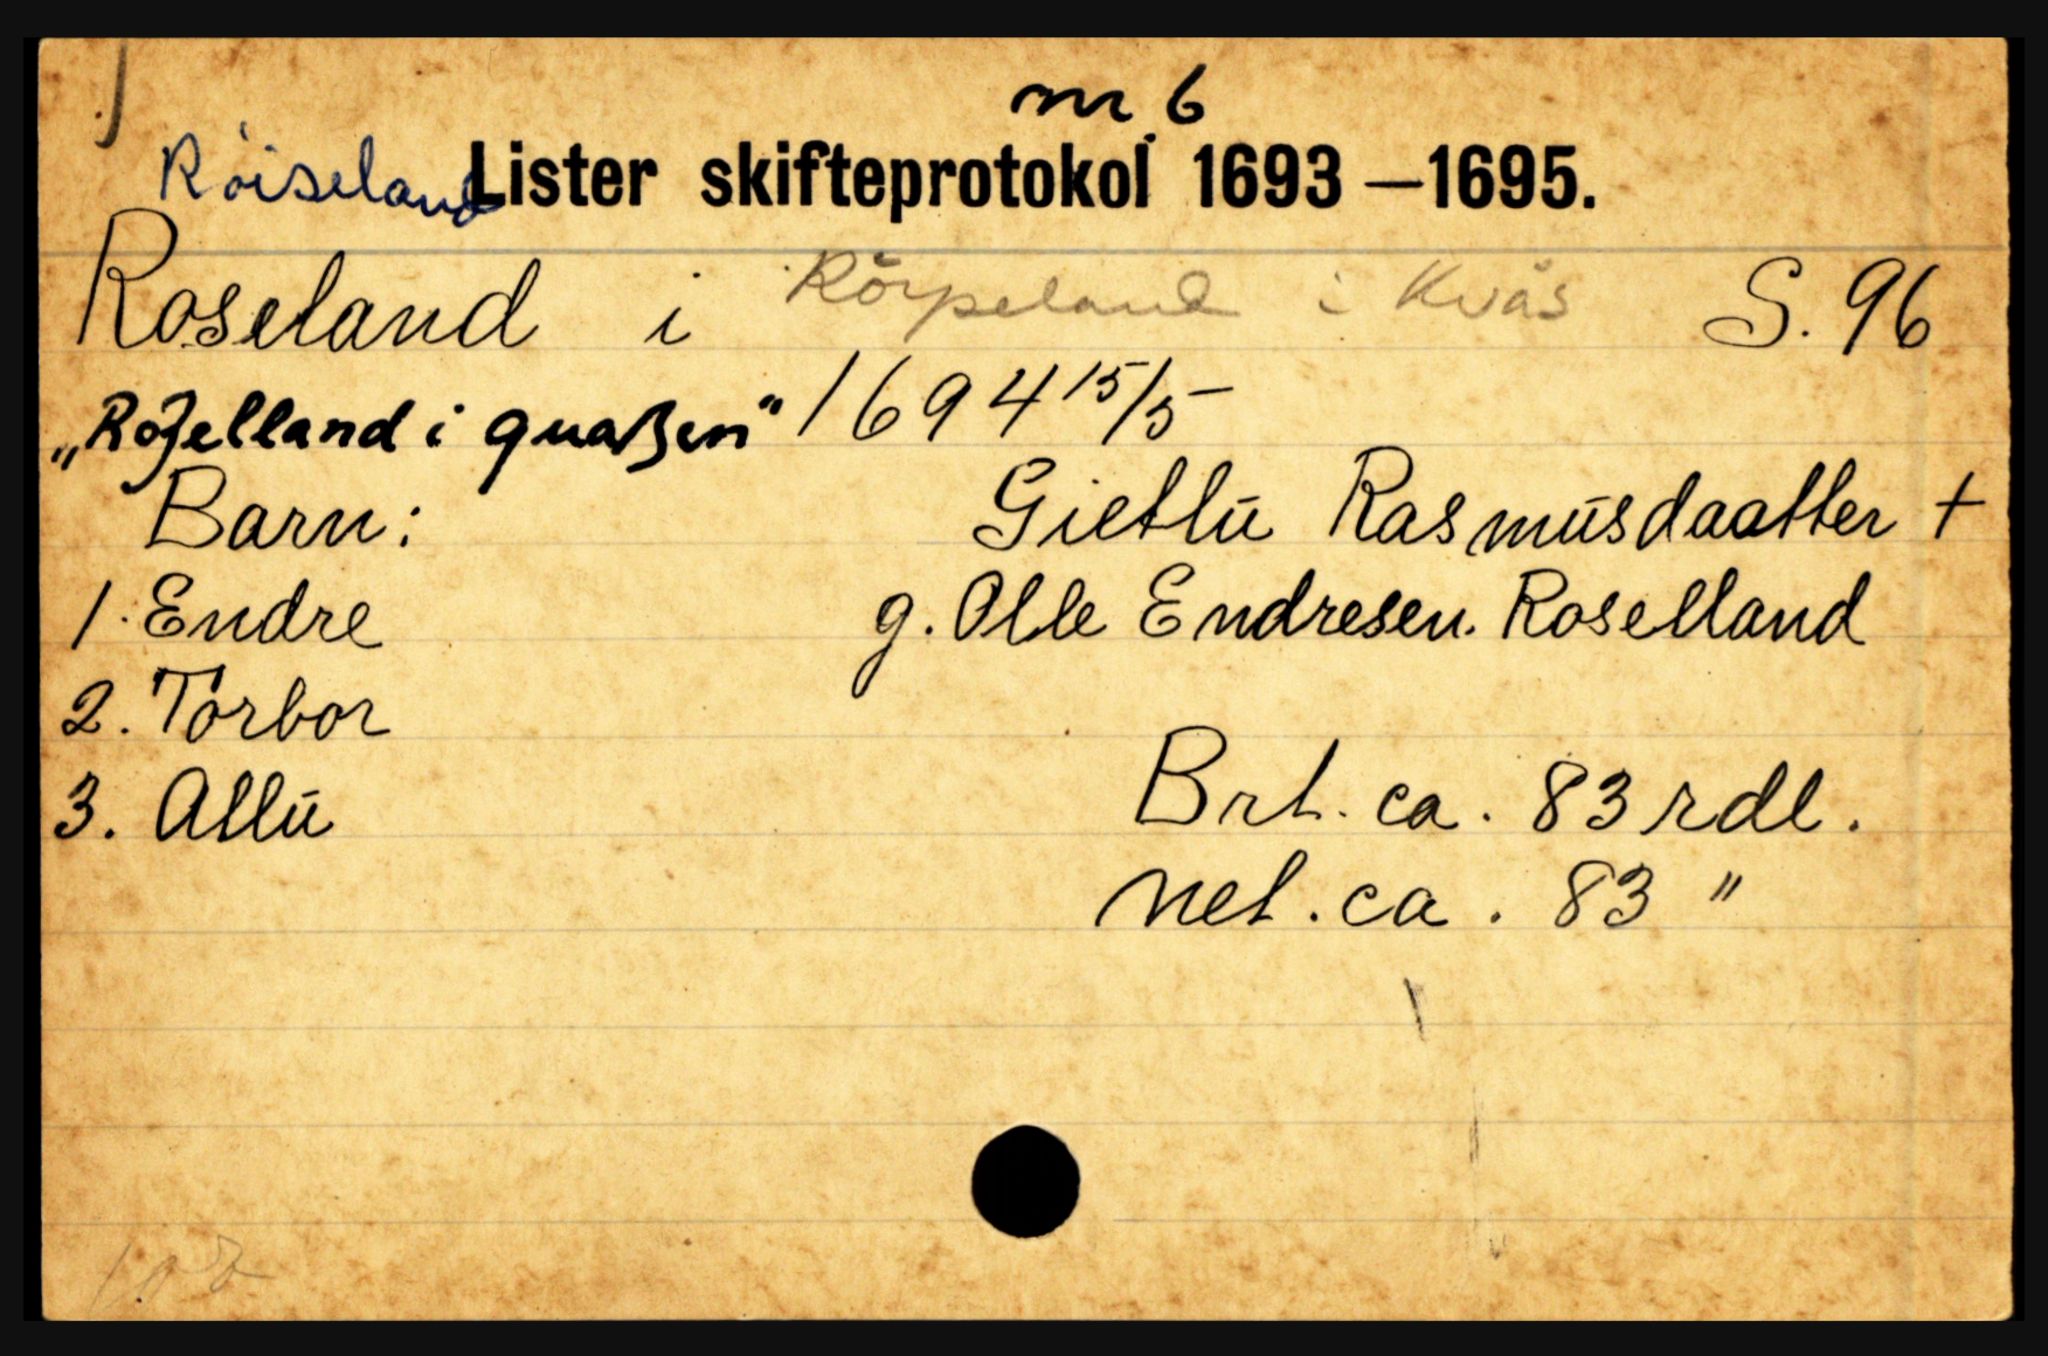 nr 6
Röiseland Lister skifteprotokol 1693—1695.
Roseland i Kvås S. 96
„Roszelland i quaßen" 1694 15/5
Barn: Gietlū Rasmūsdaatter +
1. Endre g. Olle Endresen. Roselland
2. Torbor
3. Allū Brt. ca. 83 rdl.
net. ca. 83 "